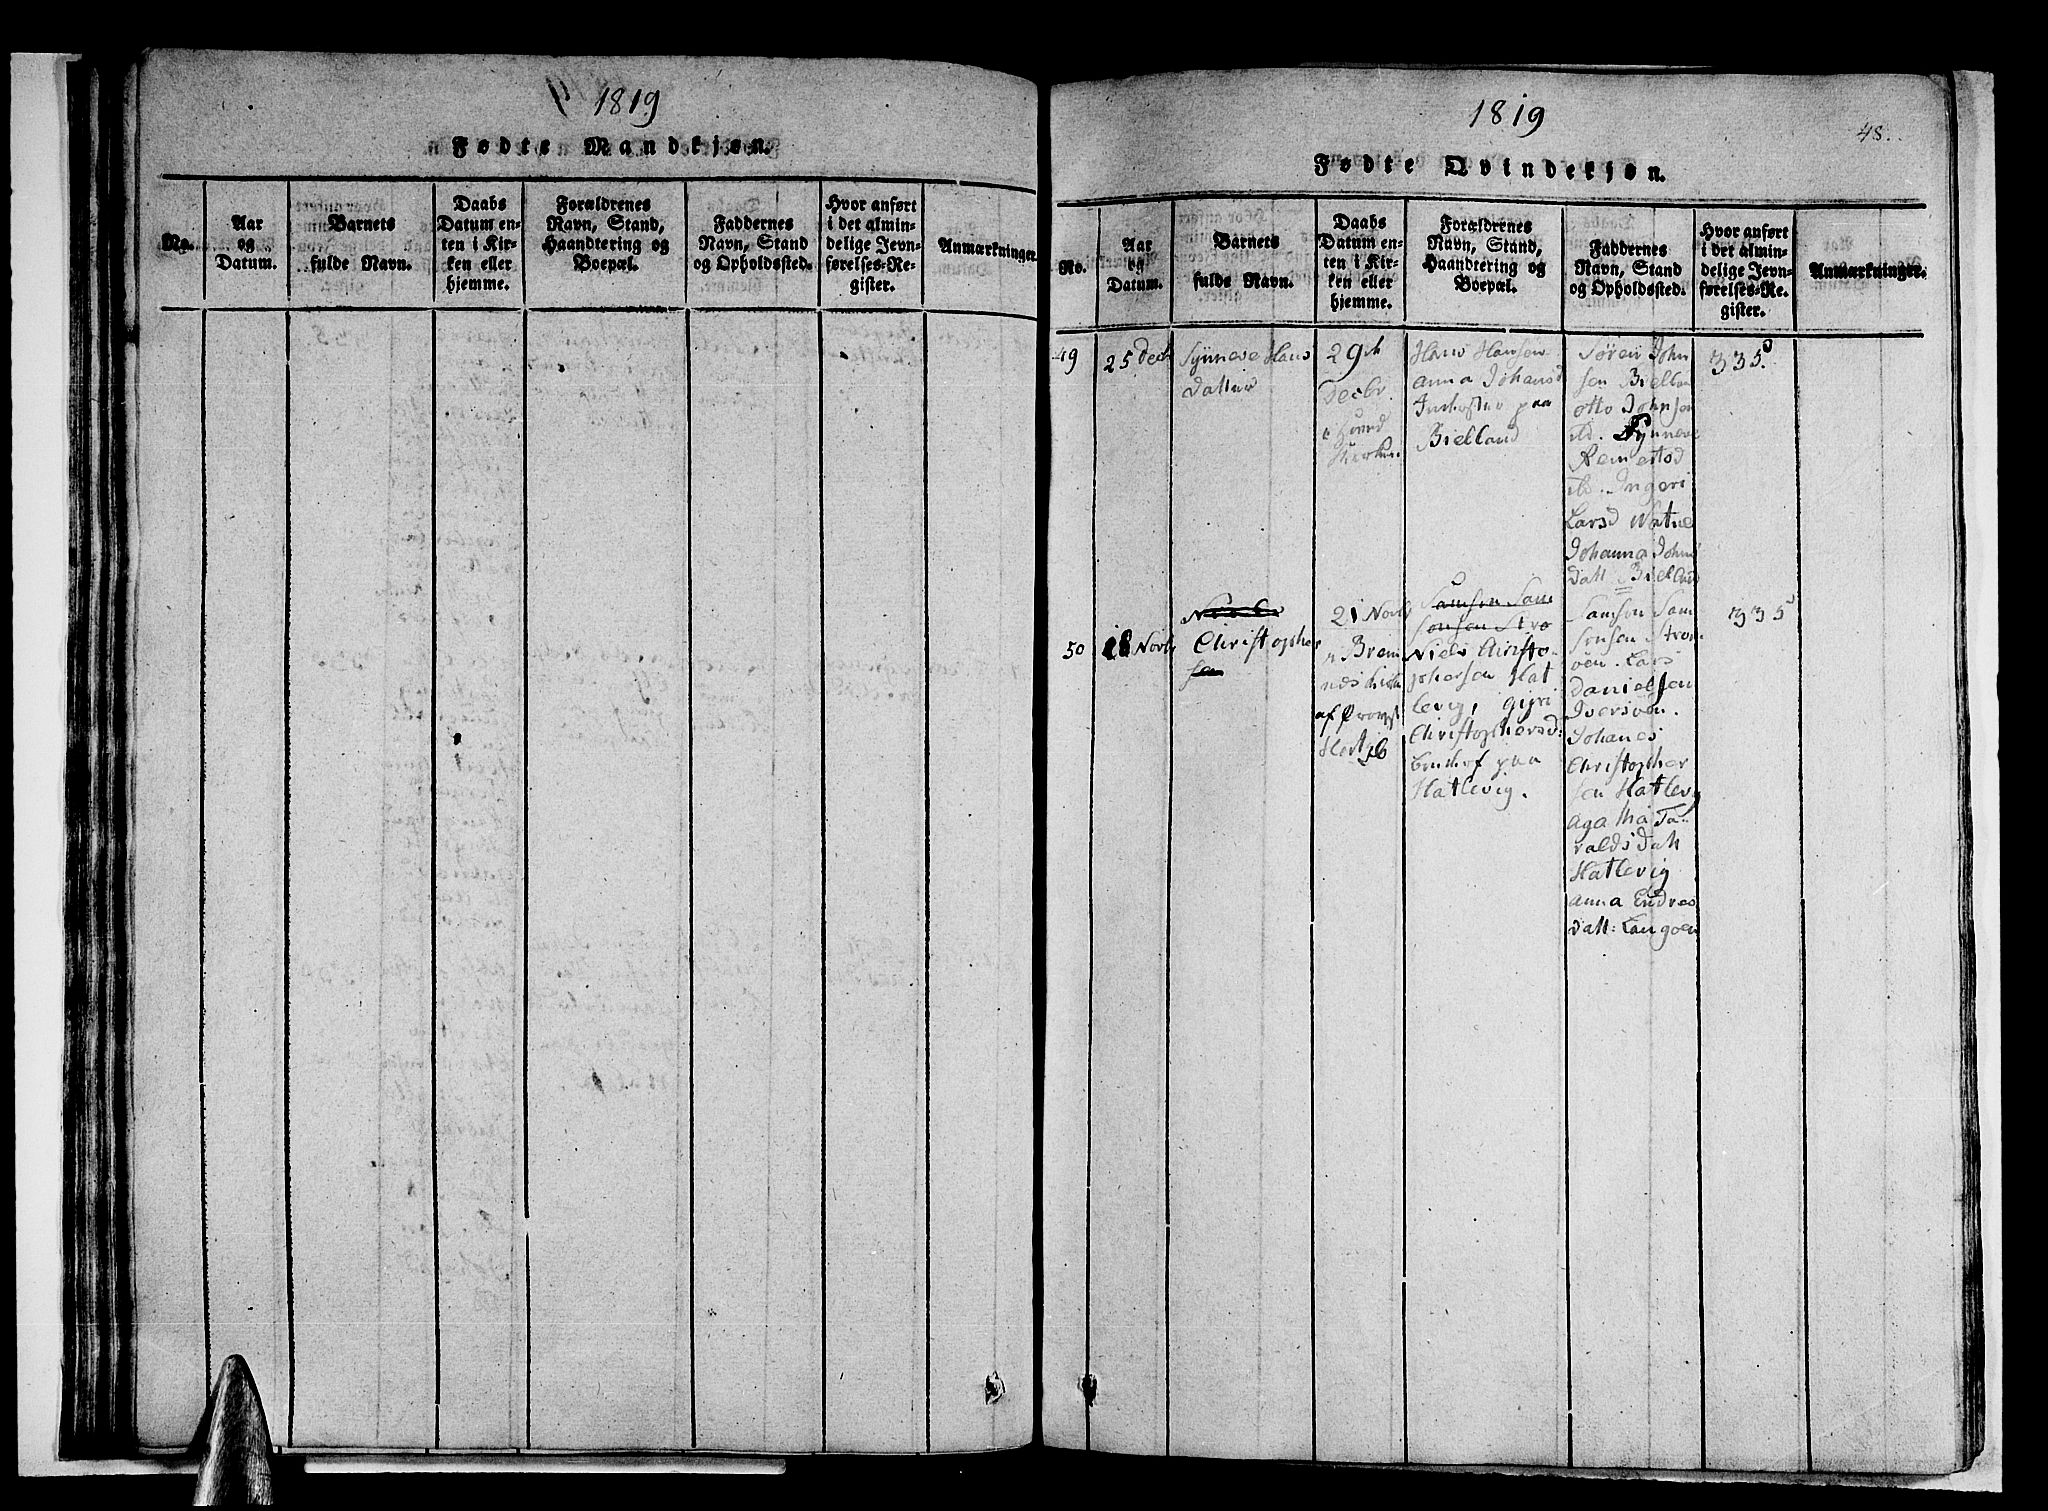 1819
Fødte Mandkjøn.
No.
Aar
og
Datum.
Barnets
fulde Navn.
Daabs
Datum en-
ten i Kir-
ken eller
hjemme.
Forældrenes
Navn, Stand,
Haandtering og
Boepæl.
Faddernes
Navn, Stand
og Opholdssted.
Hvor anført
i det almin-
delige Jevn-
førelses-Re-
gister.
Anmærkninger.
1819
48.
Fødte Qvindekjøn.
No.
Aar
og
Datum.
Barnets
fulde Navn.
Daabs
Datum en-
ten i Kir-
ken eller
hjemme.
Forældrenes
Navn, Stand,
Haandtering og
Boepæl.
Faddernes
Navn, Stand
og Opholdssted.
Hvor anført
i det almin-
delige Jevn-
førelses-Re-
gister.
Anmærkninger.
49
25 Dech
Synneve Hans
datter
29
Decbr.
Hans Hansen
Anna Johansd
Inderster paa
Bielland
Søren John
sen Biellan
Otto Johnsen
ib. Synneve
Remestad
ib. Ingeri
Larsd Watne
Johanna Johns
datt Bielland
335
50
18 Novb
Christopher
sen
21 Novb
i Brem
næs kirk
af Provst
Hertzb
Samson Sam
sonsen Stro
Niels Christo-
phersen Hat
levig, giøri
Christophersd:
Brukf paa
Hatlevig.
Samson Sam
sonsen Strom
øen. Lars
Danielsen
Iversøen.
Johanes
Christopher
sen Hatlevig
Agatha Ta-
raldsdatt
Hatlevig
Anna Endres
datt: Langøen
335